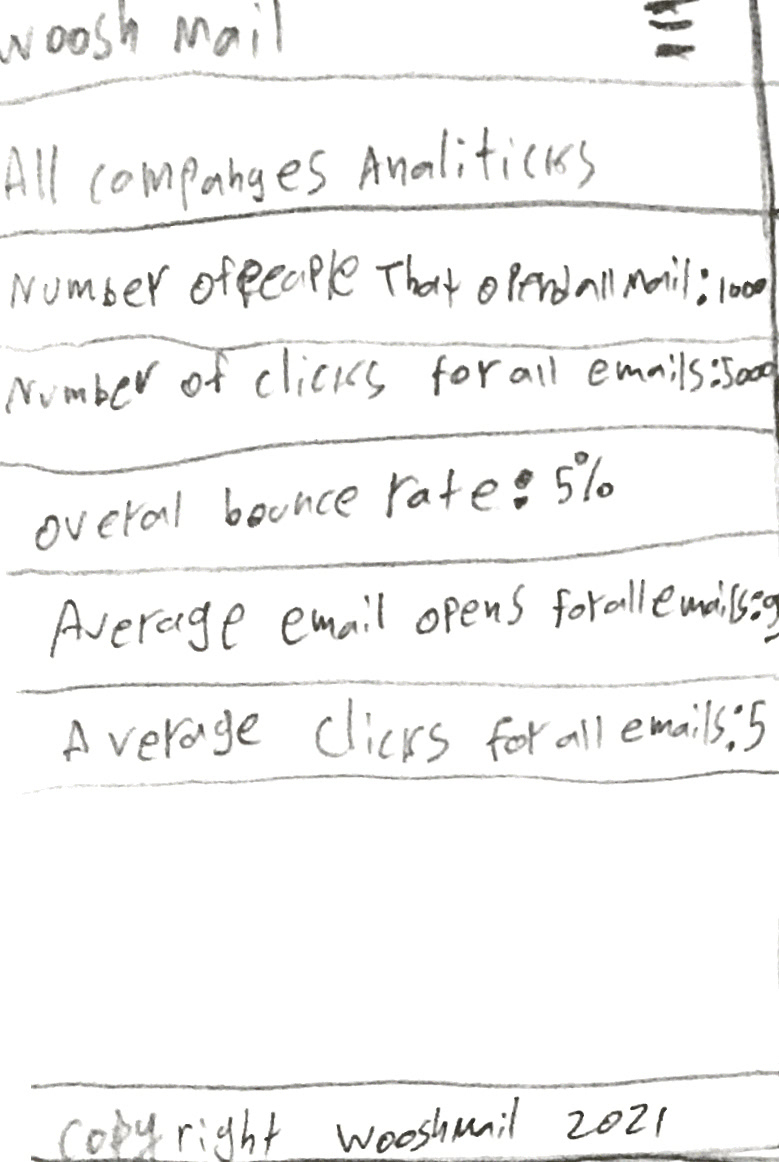 Woosh Mail
All companges Analiticks
Number of peaple That opend all mail: 1000
Number of clicks for all emails: 5000
overal bounce rate: 5%
Average email opens for all emails: 9
Average clicks for all emails: 5
Copyright wooshmail 2021